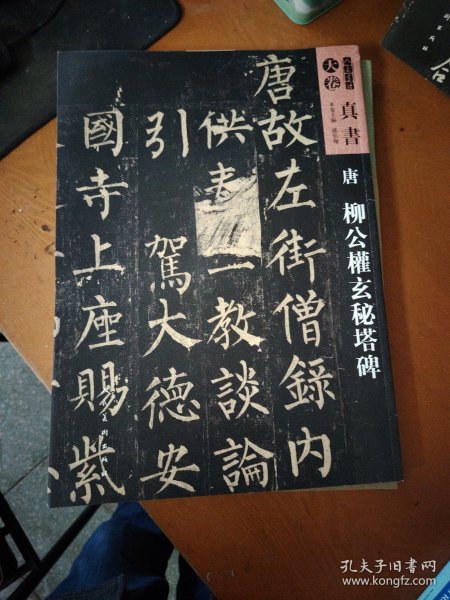 唐故左街僧録内
供奉三教談論
引駕大德安
國寺上座賜紫
大卷
真書
唐
柳公權玄秘塔碑
孔夫子旧书网
www.kongfz.com